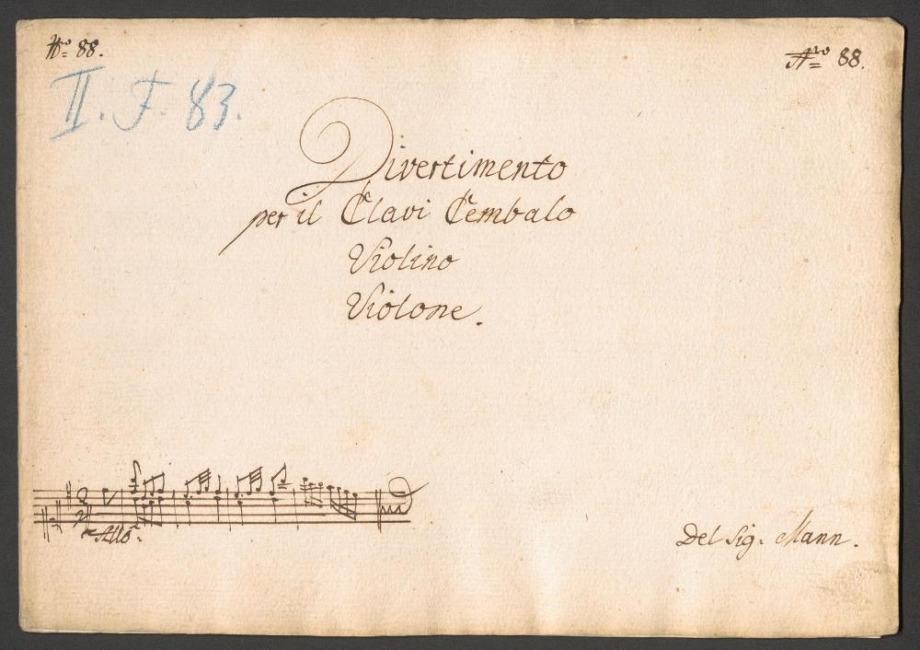 No 88.
Nro 88.
II. F. 83.
Divertimento
per il Clavi Cembalo
Violino
Violone.
Allo.
Del Sig. Mann.